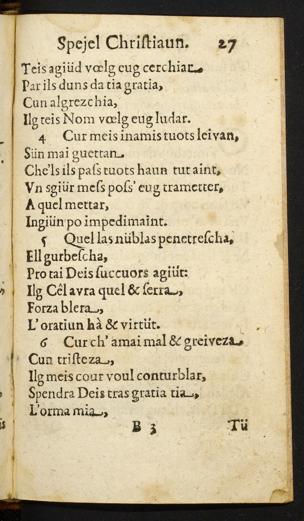 Spejel Chriſtiaun. 27
Teis agiüd vœlg eug cerchiar
Par ils duns da tia gratia,
Cun algrezchia,
Ilg teis Nom vœlg eug ludar.
4 Cur meis inamis tuots leivan,
Sün mai guettan
Che'ls ils paſs tuots haun tut aint,
Vn sgiür meſs poſs' eug trametter,
A quel mettar,
Ingiün po impedimaint.
5 Quel las nüblas penetreſcha,
Ell gurbeſcha,
Pro tai Deis ſuccuors agiüt:
Ilg Cêl avra quel & ſerra,
Forza blera,
L'oratiun hà & virtüt.
6 Cur ch'amai mal & greiveza
Cun triſteza,
Ilg meis cour voul conturblar,
Spendra Deis tras gratia tia,
L'orma mia,
B 3 Tü